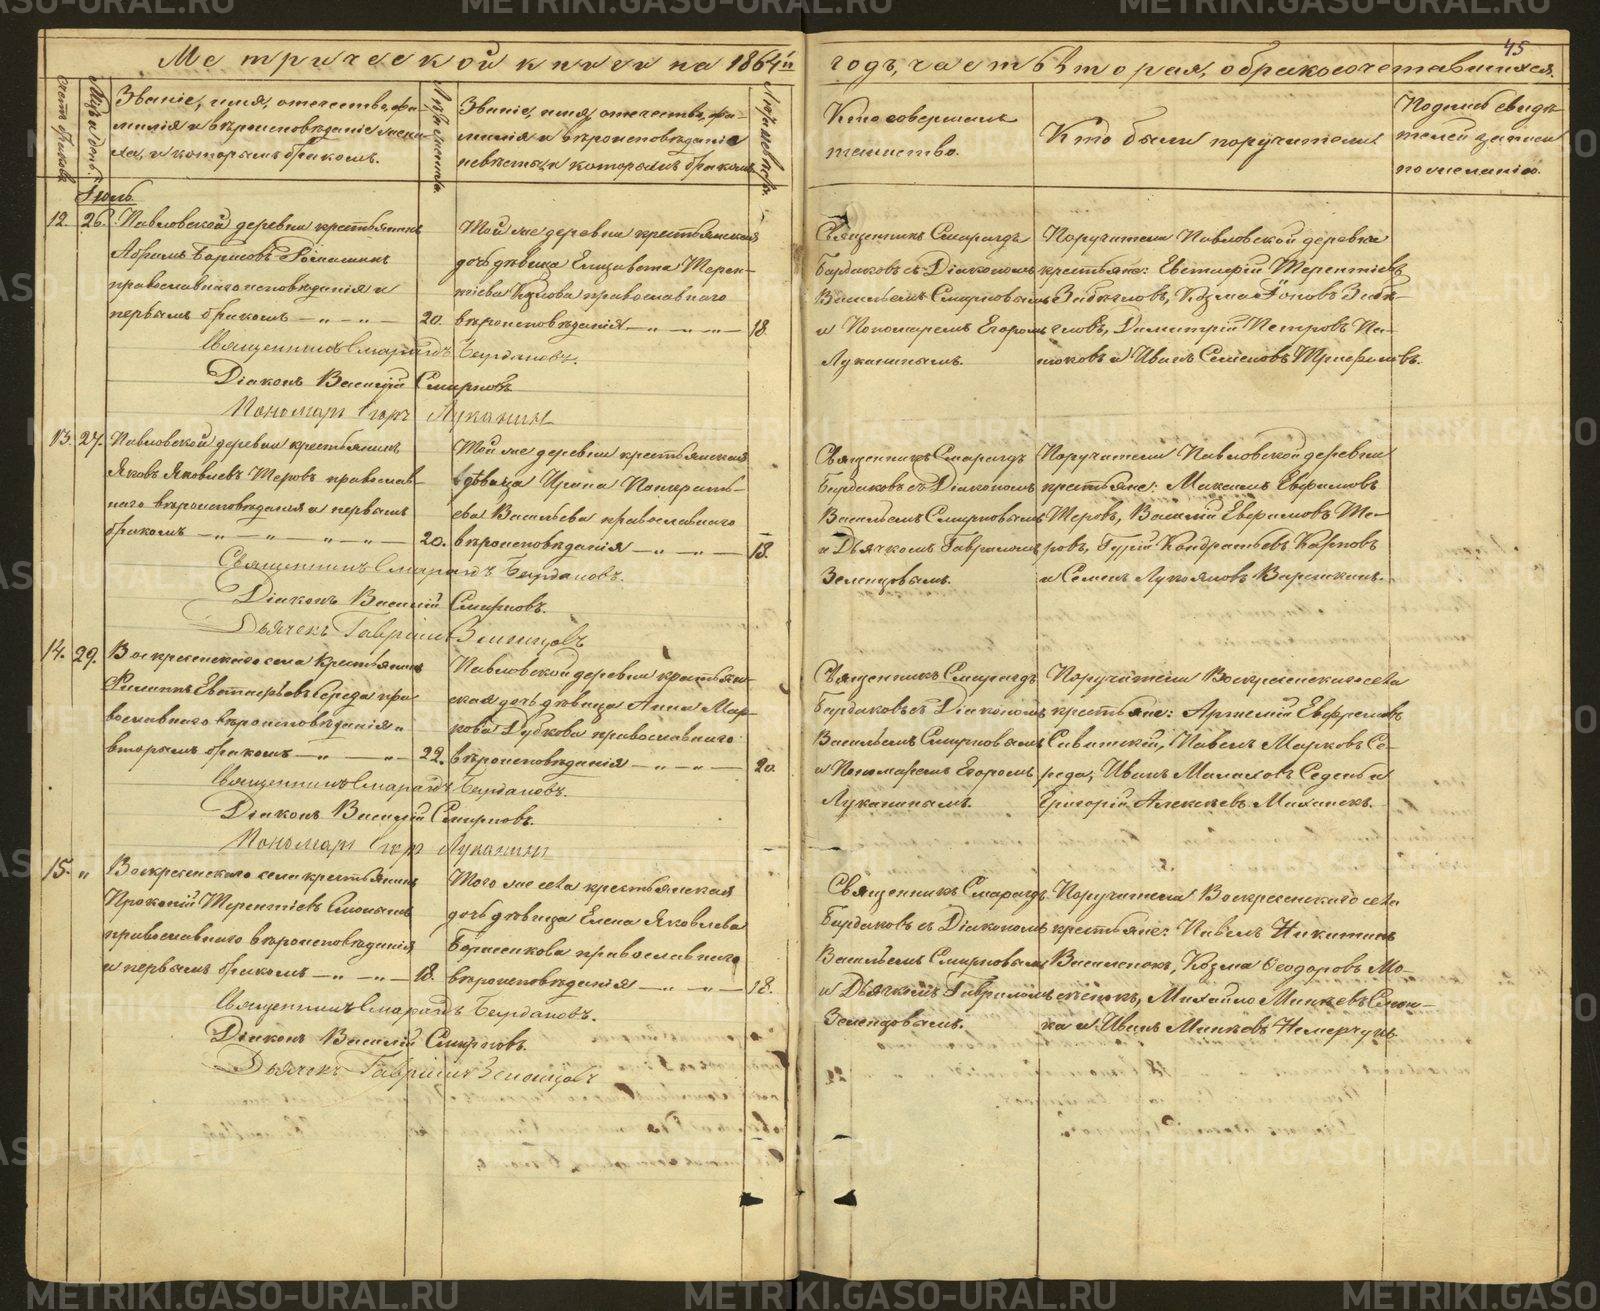 45
Метрической книги на 1864й годъ, часть вторая, о бракосочетавшихся.
Счетъ браковъ.
Мѣс. и день.
Званіе, имя, отечество, фа-
милія и вѣроисповѣданіе жени-
ха, и которымъ бракомъ.
Лѣта жениха.
Званіе, имя, отечество, фа-
милія и вѣроисповѣданіе
невѣсты, и которымъ бракомъ.
Лѣта невѣсты.
Кто совершалъ
таинство.
Кто были поручители.
Подпись свидѣ-
телей записи
по желанію.
Іюль.
12. 26.
Павловской деревни крестьянинъ
Абрамъ Борисовъ
православнаго исповѣданія и
первымъ бракомъ
20.
Той же деревни крестьянская
дочь дѣвица Елизавета Терен-
тіева Козлова православнаго
вѣроисповѣданія
18
Священникъ Смарагдъ
Бардаковъ съ Діакономъ
Васильемъ Смирновымъ
и Пономаремъ Егоромъ
Луканинымъ.
Поручители Павловской деревни
крестьяне: Евстафій Терентіевъ
Козма
Димитрій Петровъ Па-
и Иванъ Семеновъ
Священникъ Смарагдъ Бардаковъ.
Діаконъ Василій Смирновъ
Пономарь Егоръ Луканинъ
13. 27.
Павловской деревни крестьянинъ
Яковъ Яковлевъ Теровъ православ-
наго вѣроисповѣданія и первымъ
бракомъ
20.
Той же деревни крестьянская
дѣвица Ирина Панкрать-
ева Васильева православнаго
вѣроисповѣданія
18.
Священникъ Смарагдъ
Бардаковъ съ Діакономъ
Васильемъ Смирновымъ
и Дьячкомъ Гавриломъ
Зеленцовымъ.
Поручители Павловской деревни
крестьяне: Максимъ Ефимовъ
Теровъ, Василій Ефимовъ Те-
ровъ, Гурій Кондратьевъ Карповъ
и Семенъ Лукояновъ
Священникъ Смарагдъ Бардаковъ.
Діаконъ Василій Смирновъ.
Дьячекъ Гавріилъ Зеленцовъ
14. 29.
Воскресенскаго села крестьянинъ
Филиппъ Евстафьевъ Середа пра-
вославнаго вѣроисповѣданія и
вторымъ бракомъ
22.
Павловской деревни крестьян-
ская дочь дѣвица Анна Мар-
кова Дубкова православнаго
вѣроисповѣданія
20.
Священникъ Смарагдъ
Бардаковъ съ Діакономъ
Васильемъ Смирновымъ
и Пономаремъ Егоромъ
Луканинымъ.
Поручители Воскресенскаго села
крестьяне: Артемій Ефремовъ
Савитскій, Павелъ Марковъ Се-
реда, Иванъ Малаховъ
Григорій Алексѣевъ
Священникъ Смарагдъ Бардаковъ.
Діаконъ Василій Смирновъ.
Пономарь Егоръ Луканинъ
15. "
Воскресенскаго села крестьянинъ
Прокопій Терентіевъ
православнаго вѣроисповѣданія,
и первымъ бракомъ
18.
Того же села крестьянская
дочь дѣвица Елена Яковлева
Борисенкова православнаго
вѣроисповѣданія
18.
Священникъ Смарагдъ
Бардаковъ съ Діакономъ
Васильемъ Смирновымъ
и Дьячкомъ Гавриломъ
Зеленцовымъ.
Поручители Воскресенскаго села
крестьяне: Павелъ Никитинъ
Василенокъ, Козма Ѳеодоровъ Мо-
Михайло Минѣевъ
и Иванъ Минѣевъ
Священникъ Смарагдъ Бардаковъ.
Діаконъ Василій Смирновъ.
Дьячекъ Гавріилъ Зеленцовъ
METRIKI.GASO-URAL.RU